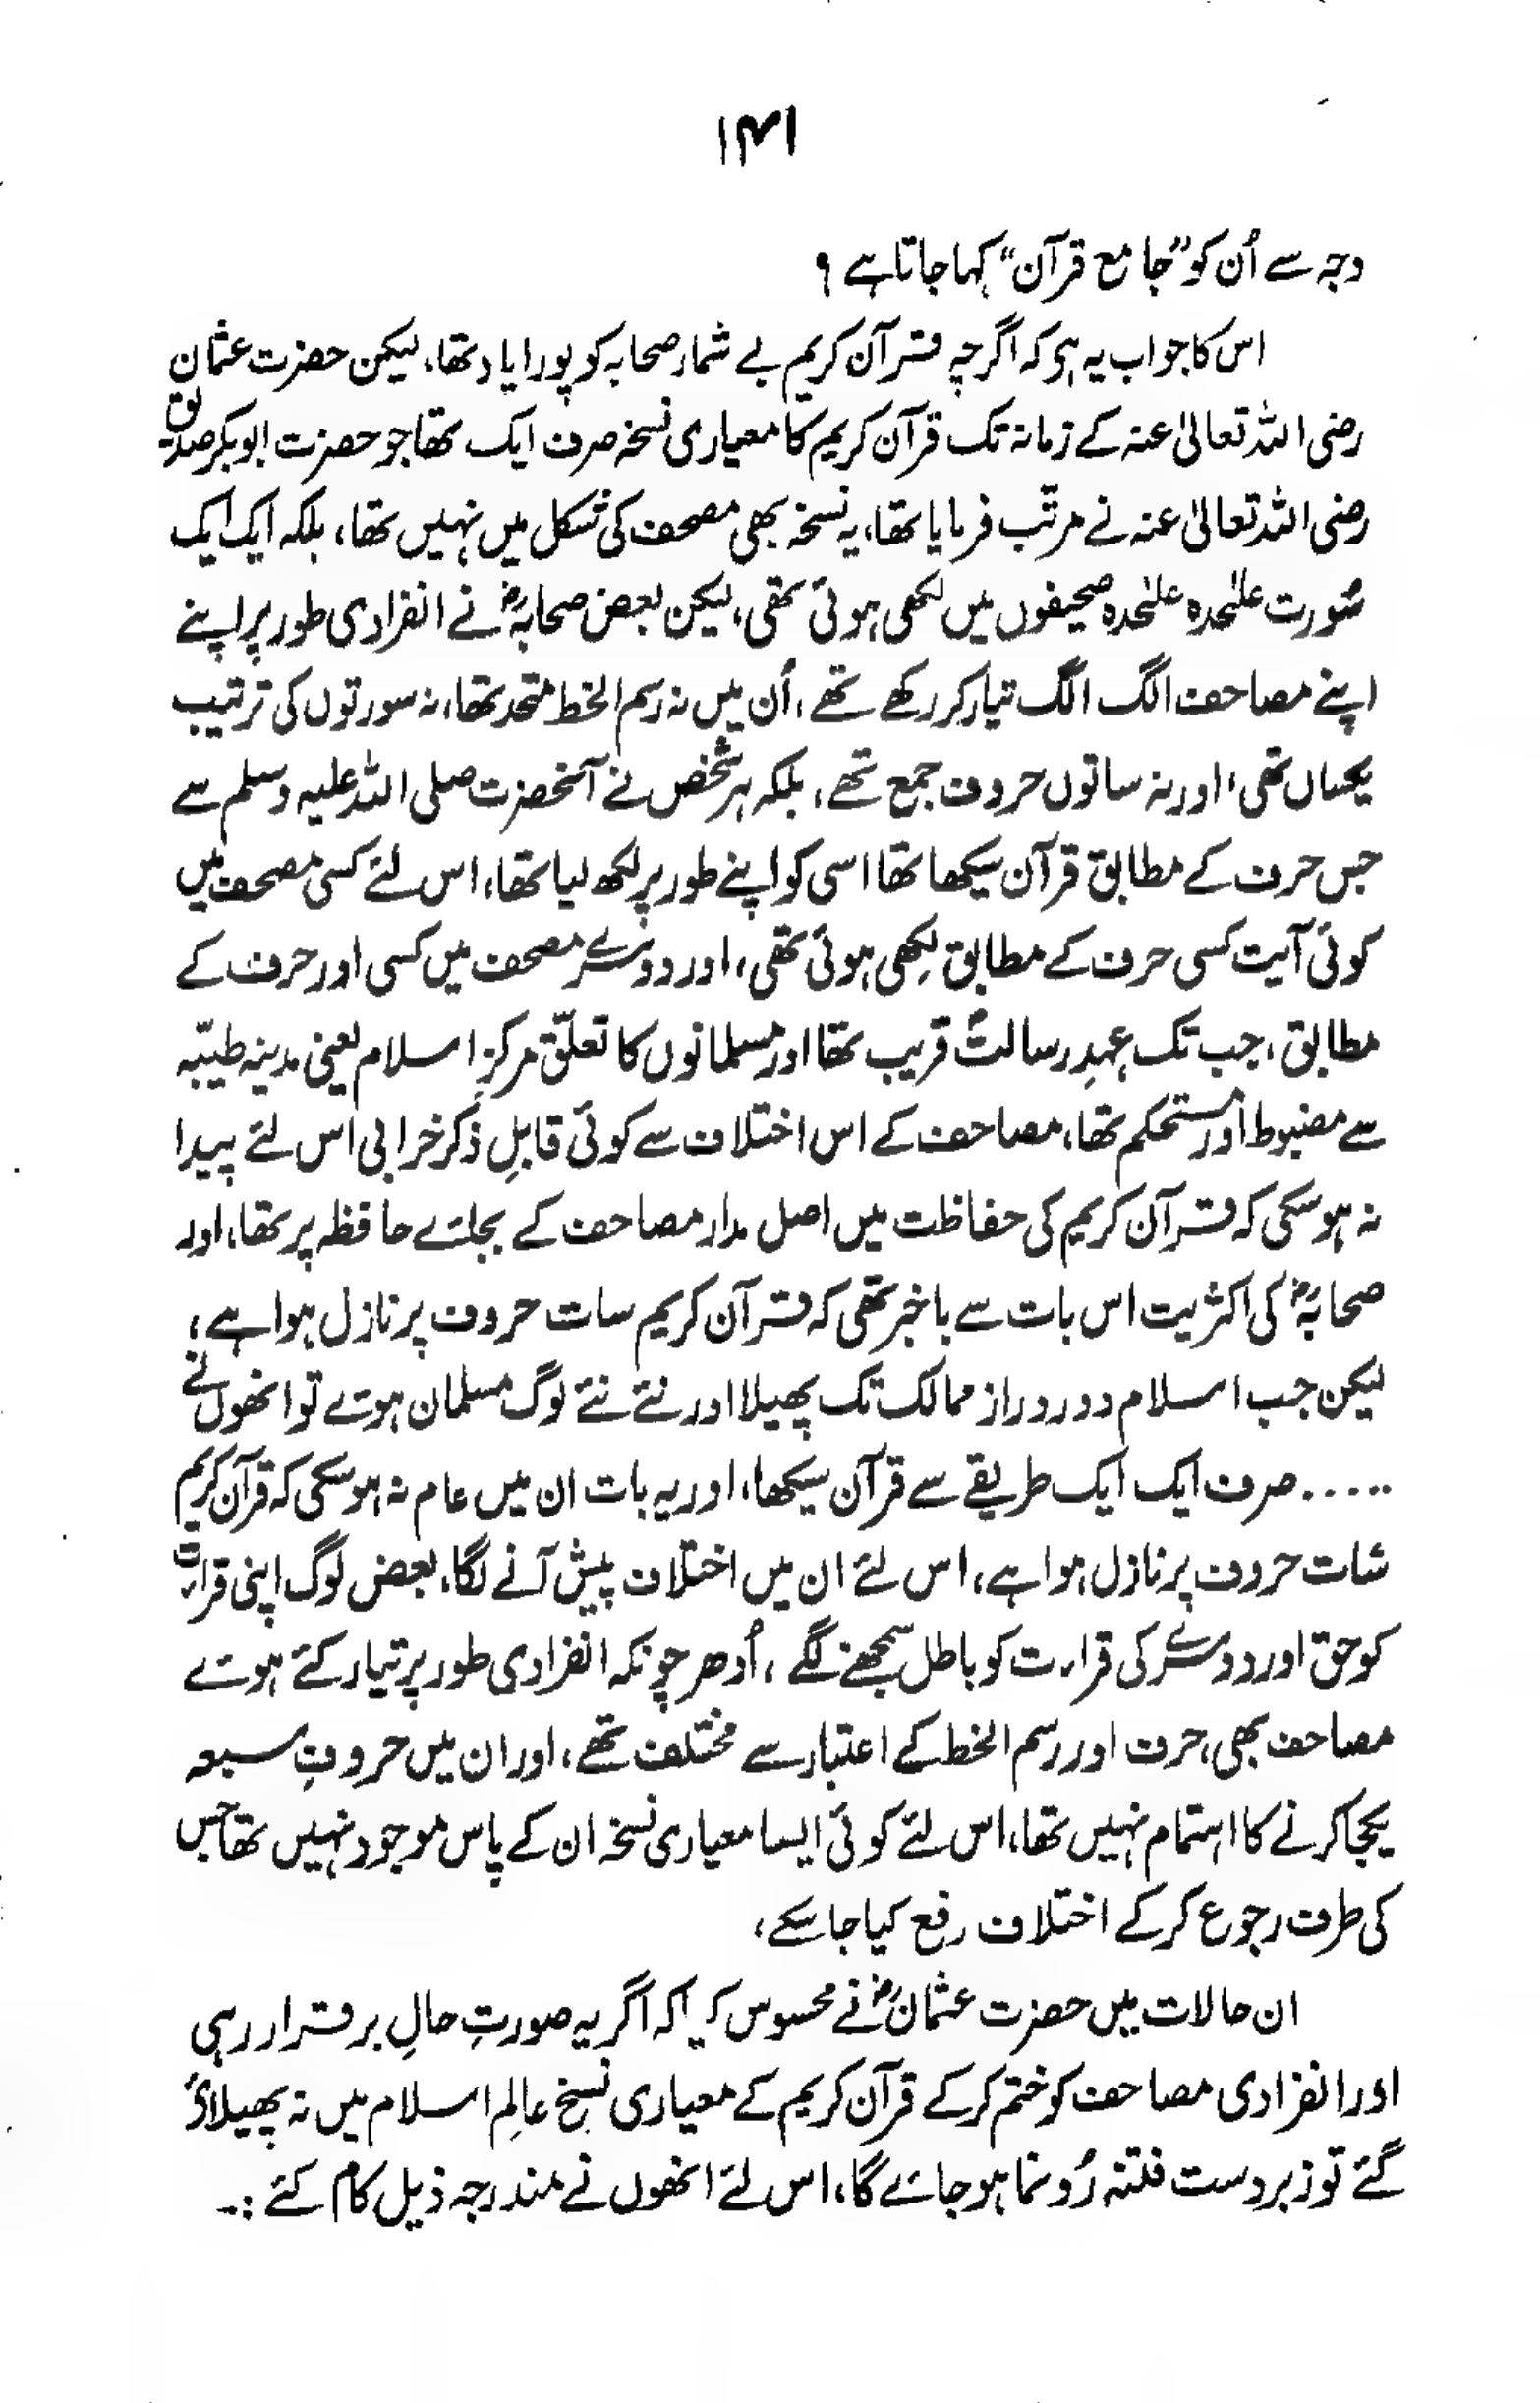 ۱۴۱
وجہ سے اُن کو ”جامع قرآن“ کہا جاتا ہے ؟
اس کا جواب یہ ہی کہ اگرچہ قرآن کریم بے شمار صحابہ کو پورا یاد تھا، لیکن حضرت عثمان
رضی اللہ تعالیٰ عنہ کے زمانہ تک قرآن کریم کا معیاری نسخہ صرف ایک تھا جو حضرت ابوبکر صدیق
رضی اللہ تعالیٰ عنہ نے مرتّب فرمایا تھا، یہ نسخہ بھی مصحف کی شکل میں نہیں تھا، بلکہ ایک ایک
سُورت علٰحدہ علٰحدہ صحیفوں میں لکھی ہوئی تھی، لیکن بعض صحابہؓ نے انفرادی طور پر اپنے
اپنے مصاحف الگ الگ تیار کر رکھے تھے، اُن میں نہ رسم الخط متحد تھا، نہ سورتوں کی ترتیب
یکساں تھی، اور نہ ساتوں حروف جمع تھے، بلکہ ہر شخص نے آنحضرت صلی اللہ علیہ وسلم سے
جس حرف کے مطابق قرآن سیکھا تھا اسی کو اپنے طور پر لکھ لیا تھا، اس لئے کسی مصحف میں
کوئی آیت کسی حرف کے مطابق لکھی ہوئی تھی، اور دوسرے مصحف میں کسی اور حرف کے
مطابق، جب تک عہدِ رسالتؐ قریب تھا اور مسلمانوں کا تعلّق مرکزِ اسلام یعنی مدینہ طیبّہ
سے مضبوط اور مستحکم تھا، مصاحف کے اس اختلاف سے کوئی قابلِ ذکر خرابی اس لئے پیدا
نہ ہوسکی کہ قرآن کریم کی حفاظت میں اصل مدار مصاحف کے بجائے حافظہ پر تھا، اور
صحابہؓ کی اکثریت اس بات سے باخبر تھی کہ قرآن کریم سات حروف پر نازل ہوا ہے،
لیکن جب اسلام دور دراز ممالک تک پھیلا اور نئے نئے لوگ مسلمان ہوئے تو انھوں نے
..... صرف ایک ایک طریقے سے قرآن سیکھا، اور یہ بات ان میں عام نہ ہوسکی کہ قرآن کریم
سات حروف پر نازل ہوا ہے، اس لئے ان میں اختلاف پیش آنے لگا، بعض لوگ اپنی قراءت
کو حق اور دوسرے کی قراءت کو باطل سمجھنے لگے، اُدھر چونکہ انفرادی طور پر تیار کئے ہوئے
مصاحف بھی، حرف اور رسم الخط کے اعتبار سے مختلف تھے، اور ان میں حروفِ سبعہ
یکجا کرنے کا اہتمام نہیں تھا، اس لئے کوئی ایسا معیاری نسخہ ان کے پاس موجود نہیں تھا جس
کی طرف رجوع کرکے اختلاف رفع کیا جاسکے،
ان حالات میں حضرت عثمانؓ نے محسوس کیا کہ اگر یہ صورتِ حالِ برقرار رہی
اور انفرادی مصاحف کو ختم کرکے قرآن کریم کے معیاری نسخے عالمِ اسلام میں نہ پھیلائے
گئے تو زبردست فتنہ رُونما ہو جائے گا، اس لئے انھوں نے مندرجہ ذیل کام کئے :۔